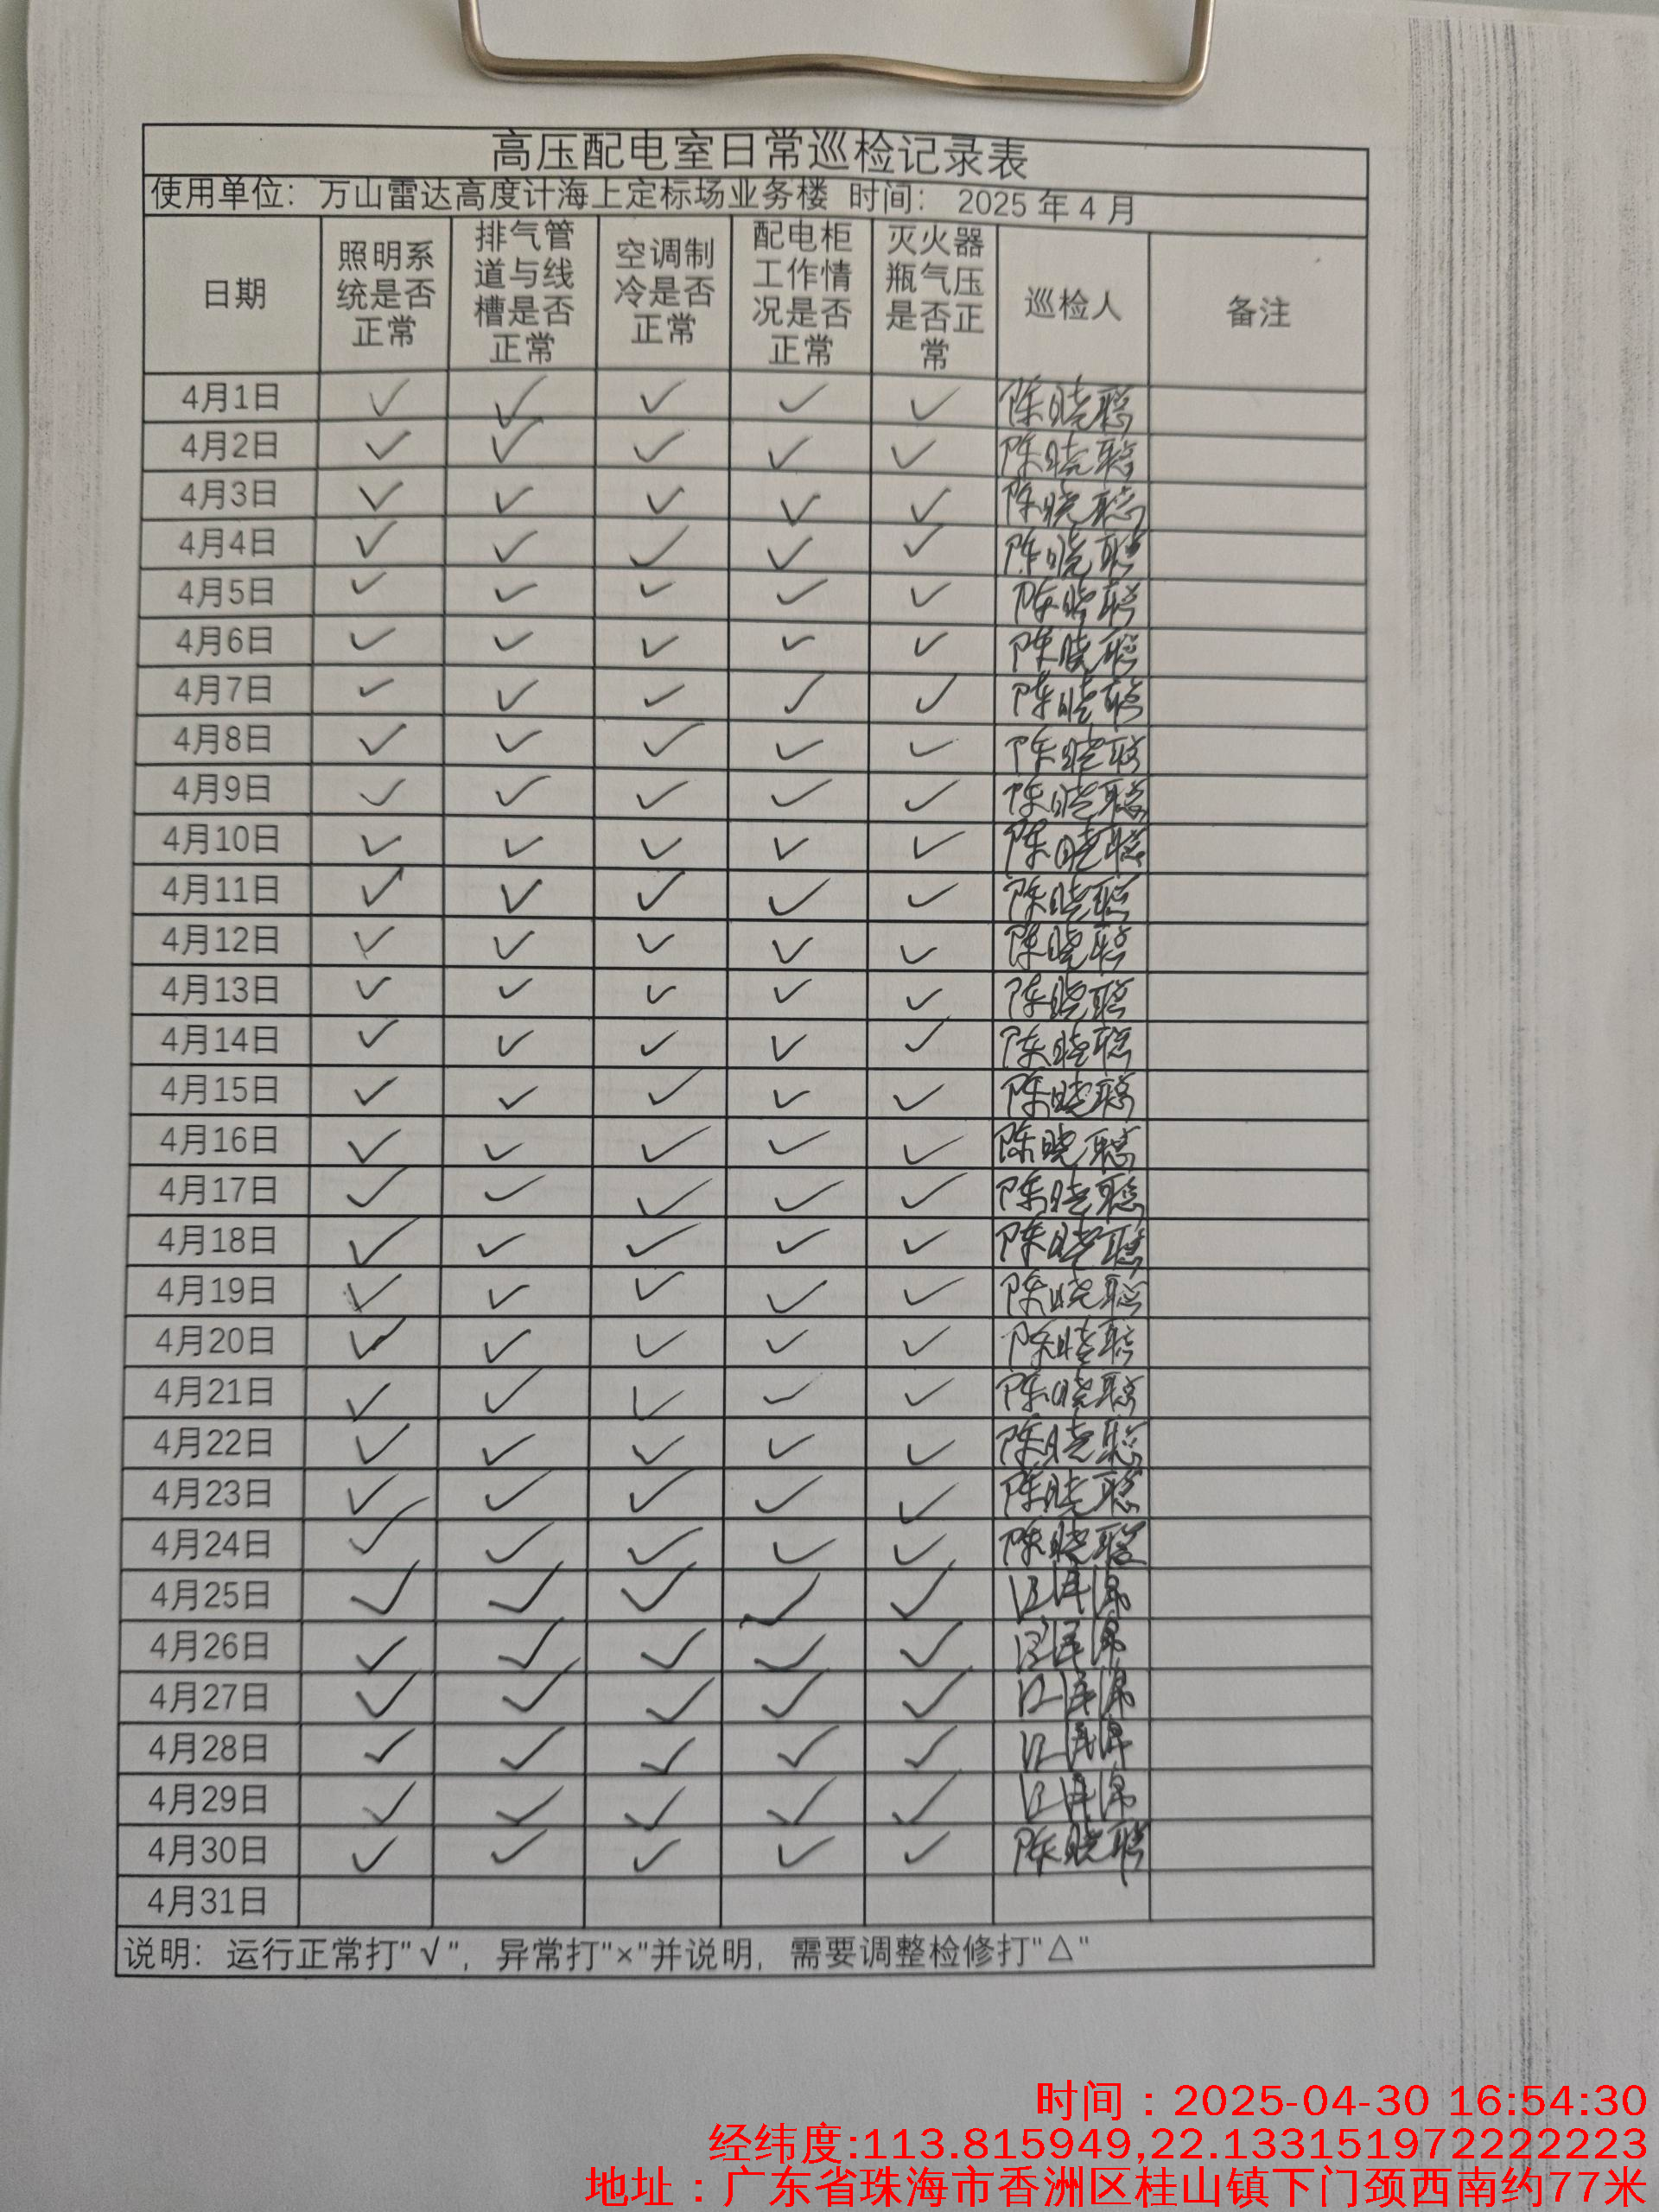 高压配电室日常巡检记录表
使用单位：万山雷达高度计海上定标场业务楼 时间： 2025 年 4 月
日期 照明系统是否正常 排气管道与线槽是否正常 空调制冷是否正常 配电柜工作情况是否正常 灭火器瓶气压是否正常 巡检人 备注
4月1日 ✓ ✓ ✓ ✓ ✓ 陈晓聪
4月2日 ✓ ✓ ✓ ✓ ✓ 陈晓聪
4月3日 ✓ ✓ ✓ ✓ ✓ 陈晓聪
4月4日 ✓ ✓ ✓ ✓ ✓ 陈晓聪
4月5日 ✓ ✓ ✓ ✓ ✓ 陈晓聪
4月6日 ✓ ✓ ✓ ✓ ✓ 陈晓聪
4月7日 ✓ ✓ ✓ ✓ ✓ 陈晓聪
4月8日 ✓ ✓ ✓ ✓ ✓ 陈晓聪
4月9日 ✓ ✓ ✓ ✓ ✓ 陈晓聪
4月10日 ✓ ✓ ✓ ✓ ✓ 陈晓聪
4月11日 ✓ ✓ ✓ ✓ ✓ 陈晓聪
4月12日 ✓ ✓ ✓ ✓ ✓ 陈晓聪
4月13日 ✓ ✓ ✓ ✓ ✓ 陈晓聪
4月14日 ✓ ✓ ✓ ✓ ✓ 陈晓聪
4月15日 ✓ ✓ ✓ ✓ ✓ 陈晓聪
4月16日 ✓ ✓ ✓ ✓ ✓ 陈晓聪
4月17日 ✓ ✓ ✓ ✓ ✓ 陈晓聪
4月18日 ✓ ✓ ✓ ✓ ✓ 陈晓聪
4月19日 ✓ ✓ ✓ ✓ ✓ 陈晓聪
4月20日 ✓ ✓ ✓ ✓ ✓ 陈晓聪
4月21日 ✓ ✓ ✓ ✓ ✓ 陈晓聪
4月22日 ✓ ✓ ✓ ✓ ✓ 陈晓聪
4月23日 ✓ ✓ ✓ ✓ ✓ 陈晓聪
4月24日 ✓ ✓ ✓ ✓ ✓ 陈晓聪
4月25日 ✓ ✓ ✓ ✓ ✓
4月26日 ✓ ✓ ✓ ✓ ✓
4月27日 ✓ ✓ ✓ ✓ ✓
4月28日 ✓ ✓ ✓ ✓ ✓
4月29日 ✓ ✓ ✓ ✓ ✓
4月30日 ✓ ✓ ✓ ✓ ✓ 陈晓聪
4月31日
说明：运行正常打"√"，异常打"×"并说明，需要调整检修打"△"
时间：2025-04-30 16:54:30
经纬度:113.815949,22.133151972222223
地址：广东省珠海市香洲区桂山镇下门颈西南约77米